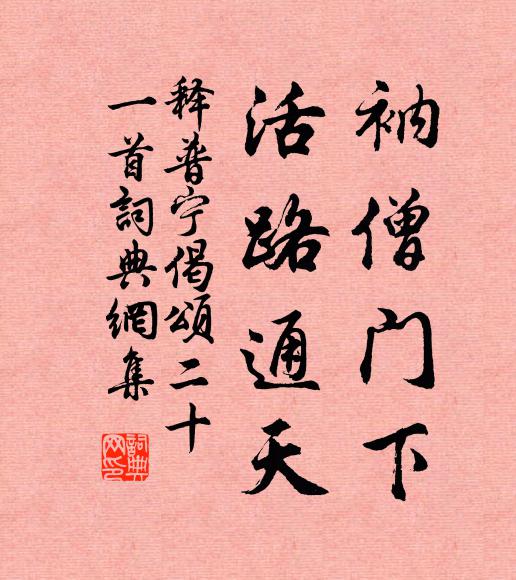 衲僧門下
活路通天
释普宁偈頌二十
一首詞典網集
詞典网印